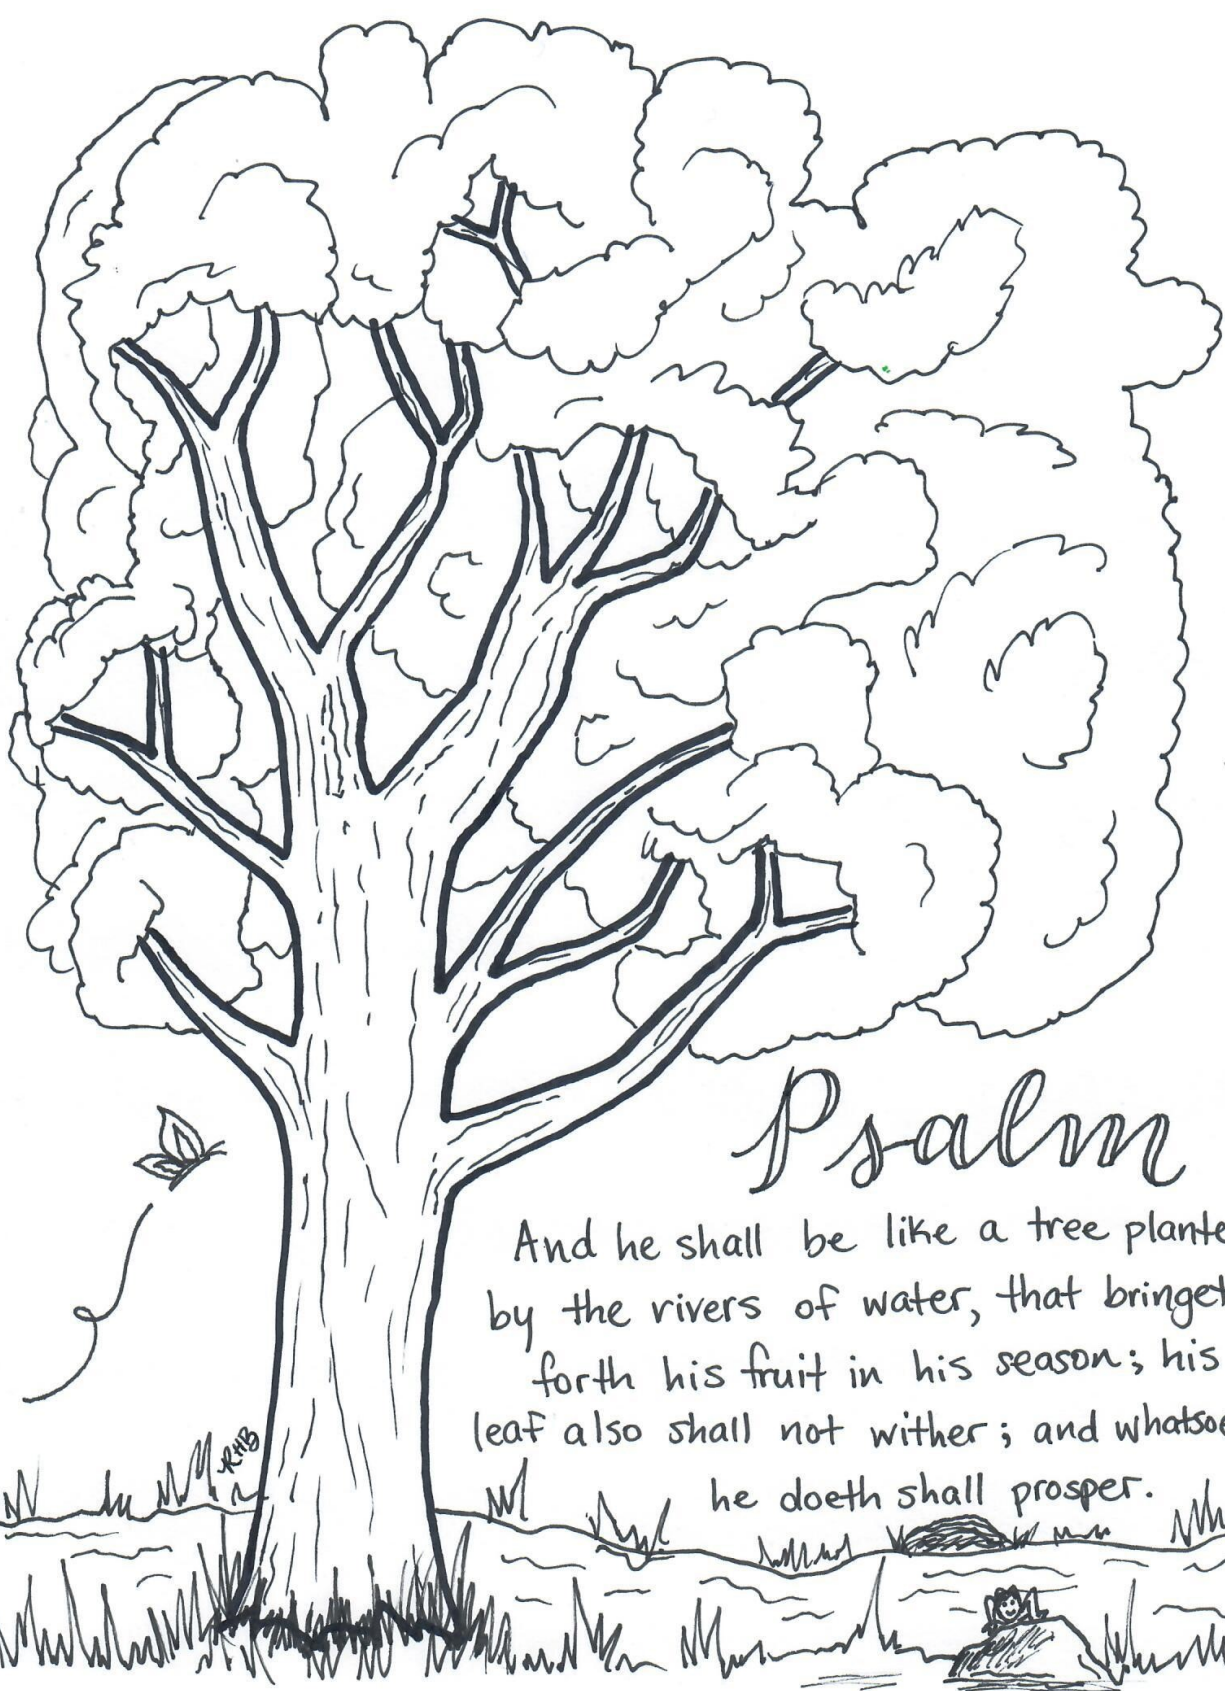 Psalm
And he shall be like a tree plante
by the rivers of water, that bringet
forth his fruit in his season; his
leaf also shall not wither; and whatsoe
he doeth shall prosper.